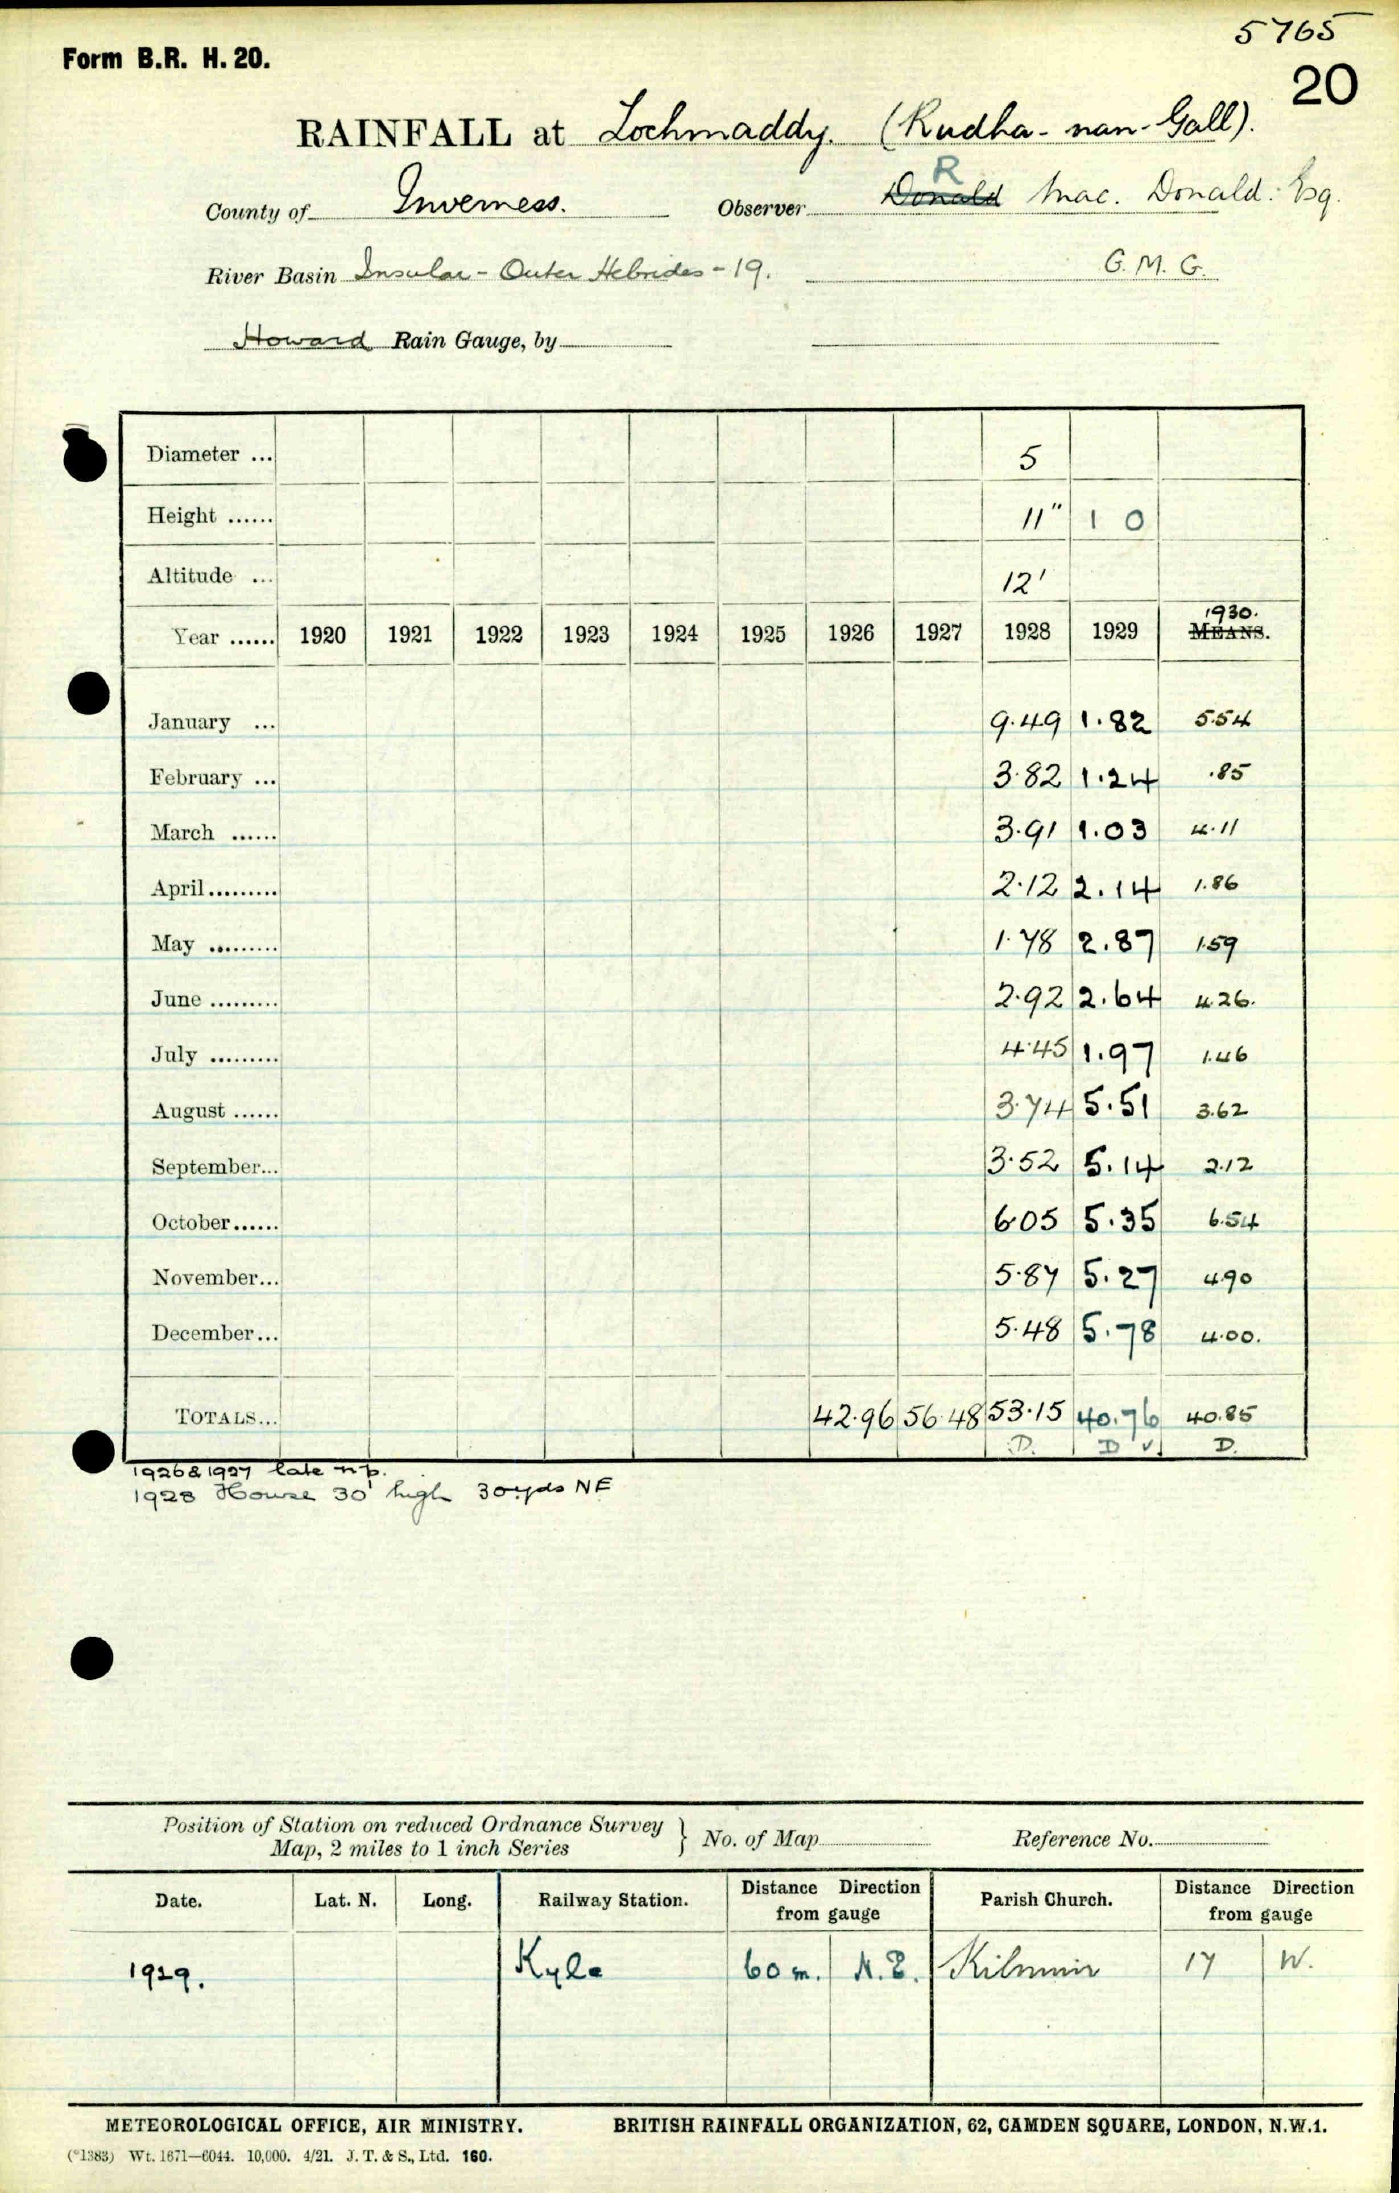 5765
Form B.R. H. 20.
20
RAINFALL at Lochmaddy. (Rudha-nan-Gall).
R
County of Inverness. Observer Donald Mac. Donald. Esq.
River Basin Insular - Outer Hebrides - 19. G. M. G.
Howard Rain Gauge, by
Diameter ... 5
Height ...... 11" 1 0
Altitude ... 12'
1930.
Year ...... 1920 1921 1922 1923 1924 1925 1926 1927 1928 1929 MEANS.
January ... 9.49 1.82 5.54
February ... 3.82 1.24 .85
March ...... 3.91 1.03 4.11
April ......... 2.12 2.14 1.86
May ......... 1.78 2.87 1.59
June ......... 2.92 2.64 4.26.
July ......... 4.45 1.97 1.46
August ...... 3.74 5.51 3.62
September... 3.52 5.14 2.12
October ...... 6.05 5.35 6.54
November... 5.87 5.27 4.90
December... 5.48 5.78 4.00.
TOTALS... 42.96 56.48 53.15 40.76 40.85
D. D ✓ D.
1926 & 1927 late n.p.
1928 House 30' high 30yds NE
Position of Station on reduced Ordnance Survey
Map, 2 miles to 1 inch Series } No. of Map Reference No.
Date. Lat. N. Long. Railway Station. Distance Direction from gauge Parish Church. Distance Direction from gauge
1929. Kyle 60 m. N.E. Kilmuir 17 W.
METEOROLOGICAL OFFICE, AIR MINISTRY. BRITISH RAINFALL ORGANIZATION, 62, CAMDEN SQUARE, LONDON, N.W.1.
(*1383) Wt. 1671—6044. 10,000. 4/21. J. T. & S., Ltd. 160.